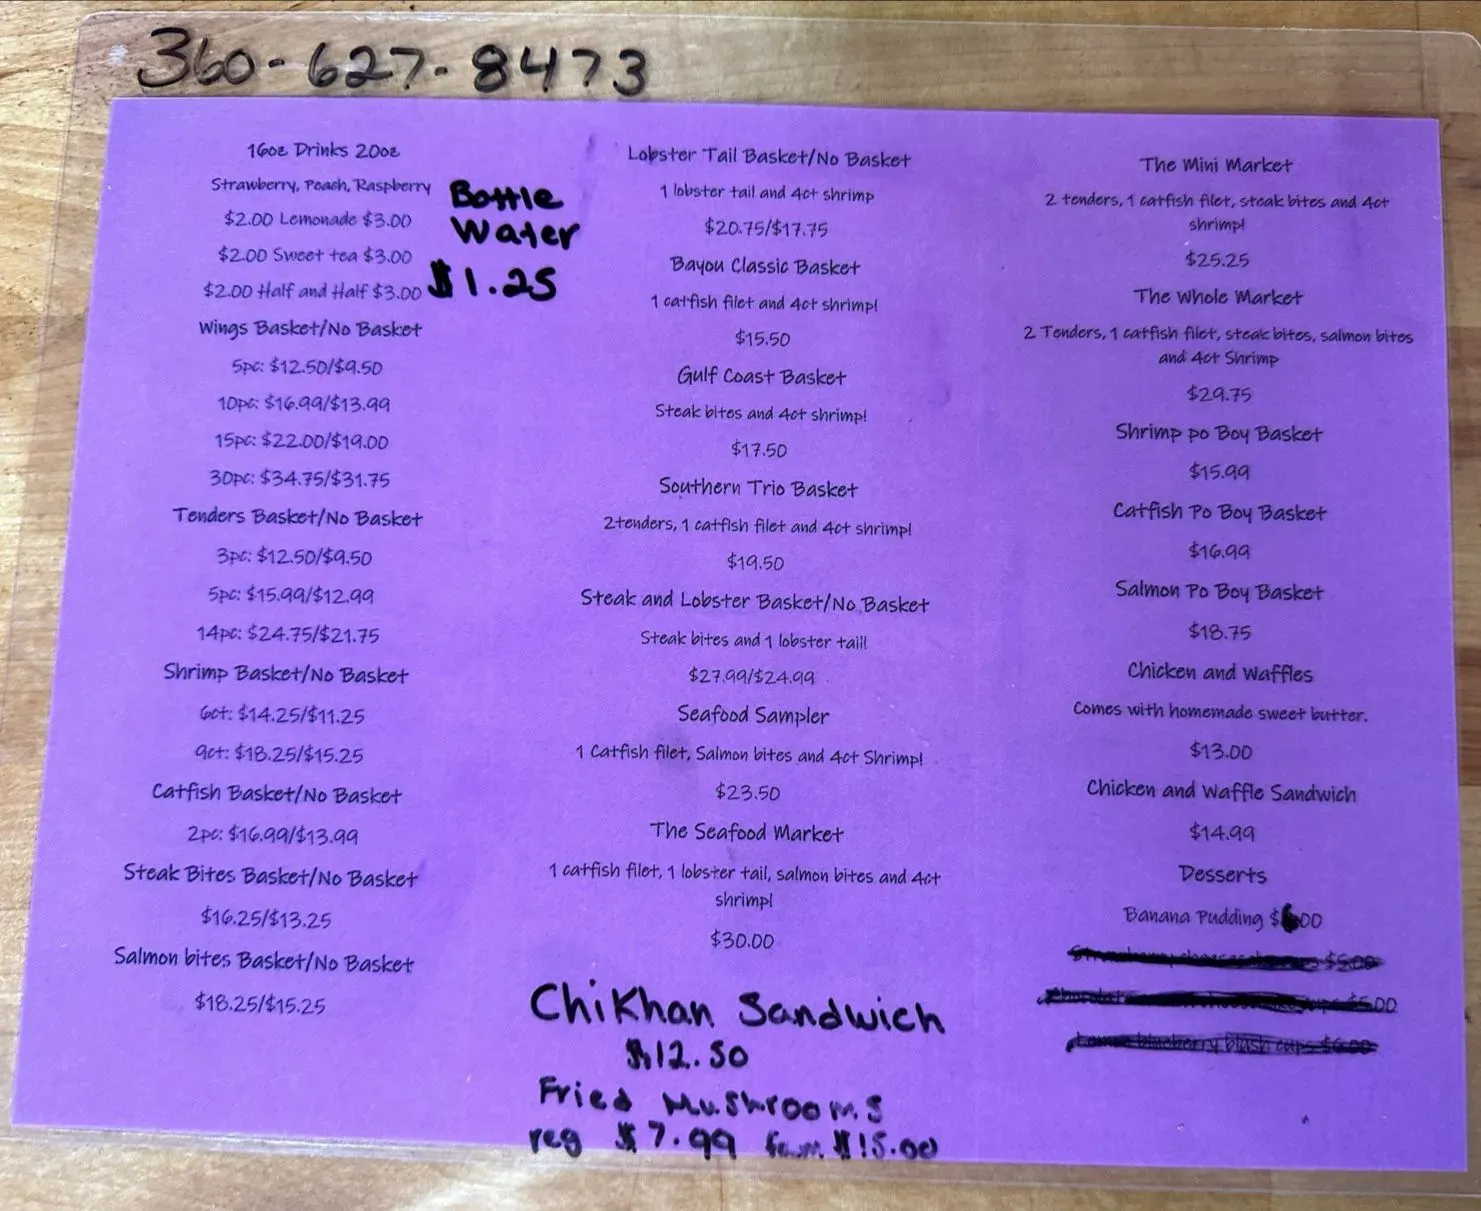 360-627-8473
16oz Drinks 20oz
Strawberry, Peach, Raspberry
$2.00 Lemonade $3.00
$2.00 Sweet tea $3.00
$2.00 Half and Half $3.00
Bottle
Water
$1.25
Wings Basket/No Basket
5pc: $12.50/$9.50
10pc: $16.99/$13.99
15pc: $22.00/$19.00
30pc: $34.75/$31.75
Tenders Basket/No Basket
3pc: $12.50/$9.50
5pc: $15.99/$12.99
14pc: $24.75/$21.75
Shrimp Basket/No Basket
6ct: $14.25/$11.25
9ct: $18.25/$15.25
Catfish Basket/No Basket
2pc: $16.99/$13.99
Steak Bites Basket/No Basket
$16.25/$13.25
Salmon bites Basket/No Basket
$18.25/$15.25
Lobster Tail Basket/No Basket
1 lobster tail and 4ct shrimp
$20.75/$17.75
Bayou Classic Basket
1 catfish filet and 4ct shrimp!
$15.50
Gulf Coast Basket
Steak bites and 4ct shrimp!
$17.50
Southern Trio Basket
2tenders, 1 catfish filet and 4ct shrimp!
$19.50
Steak and Lobster Basket/No Basket
Steak bites and 1 lobster tail!
$27.99/$24.99
Seafood Sampler
1 Catfish filet, Salmon bites and 4ct Shrimp!
$23.50
The Seafood Market
1 catfish filet, 1 lobster tail, salmon bites and 4ct
shrimp!
$30.00
ChiKhan Sandwich
$12.50
Fried Mushrooms
reg $7.99 fam $15.00
The Mini Market
2 tenders, 1 catfish filet, steak bites and 4ct
shrimp!
$25.25
The Whole Market
2 Tenders, 1 catfish filet, steak bites, salmon bites
and 4ct Shrimp
$29.75
Shrimp po Boy Basket
$15.99
Catfish Po Boy Basket
$16.99
Salmon Po Boy Basket
$18.75
Chicken and Waffles
Comes with homemade sweet butter.
$13.00
Chicken and Waffle Sandwich
$14.99
Desserts
Banana Pudding $6.00
$5.00
blueberry blash cups $6.00